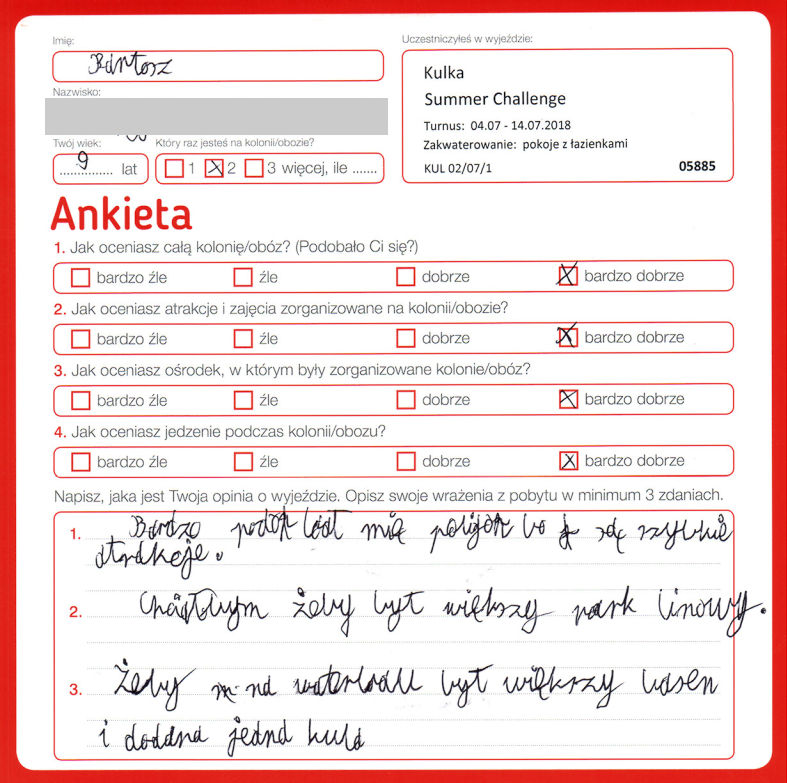 Imię:
Bartosz
Nazwisko:
Twój wiek:
9 lat
Który raz jesteś na kolonii/obozie?
1 2 3 więcej, ile .......
Uczestniczyłeś w wyjeździe:
Kulka
Summer Challenge
Turnus: 04.07 - 14.07.2018
Zakwaterowanie: pokoje z łazienkami
KUL 02/07/1 05885
Ankieta
1. Jak oceniasz całą kolonię/obóz? (Podobało Ci się?)
bardzo źle źle dobrze bardzo dobrze
2. Jak oceniasz atrakcje i zajęcia zorganizowane na kolonii/obozie?
bardzo źle źle dobrze bardzo dobrze
3. Jak oceniasz ośrodek, w którym były zorganizowane kolonie/obóz?
bardzo źle źle dobrze bardzo dobrze
4. Jak oceniasz jedzenie podczas kolonii/obozu?
bardzo źle źle dobrze bardzo dobrze
Napisz, jaka jest Twoja opinia o wyjeździe. Opisz swoje wrażenia z pobytu w minimum 3 zdaniach.
1. Bardzo bo są
atrakcje.
2. żeby był większy park linowy.
3. Żeby na waterball był większy basen
i dodana jedna kula